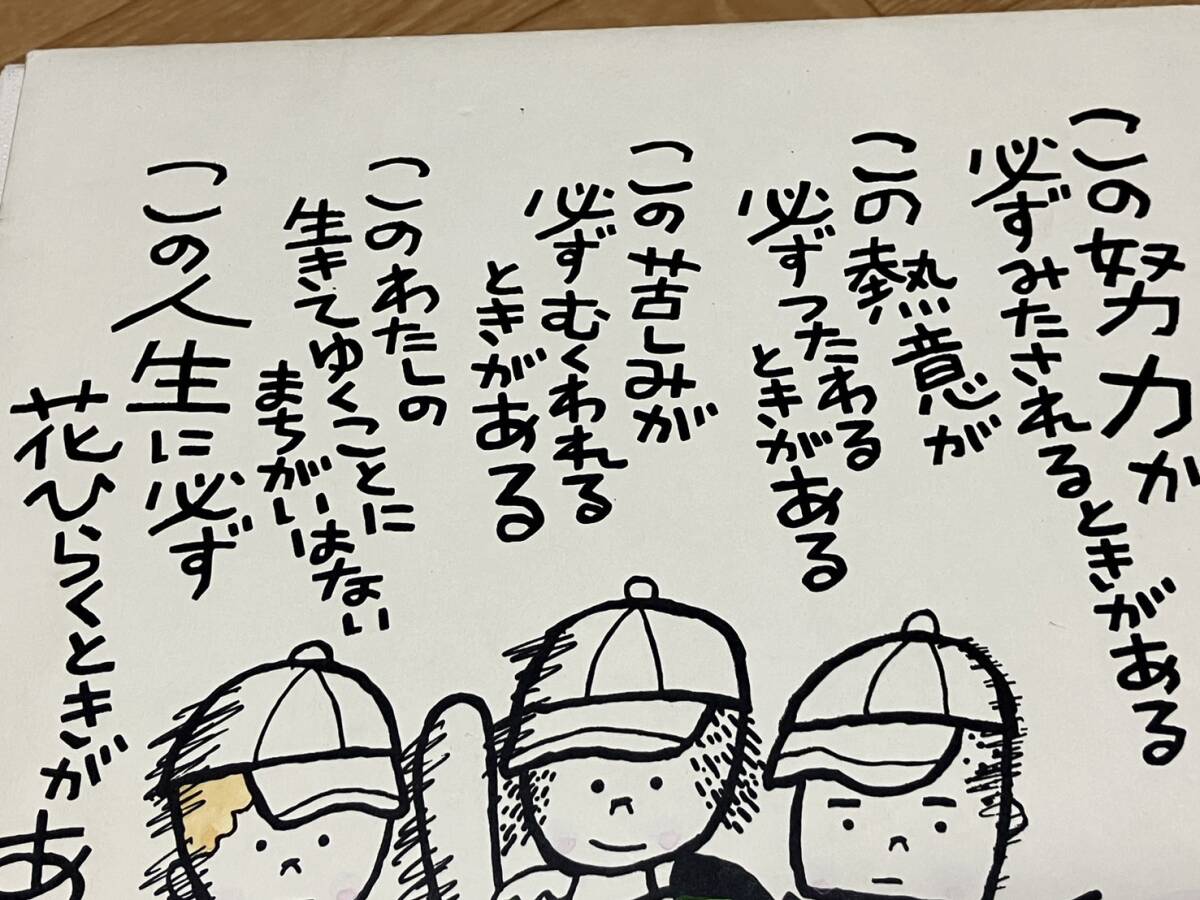 この努力が
必ずみたされるときがある
この熱意が
必ずつたわる
ときがある
この苦しみが
必ずむくわれる
ときがある
このわたしの
生きてゆくことに
まちがいはない
この人生に必ず
花ひらくときが
あ